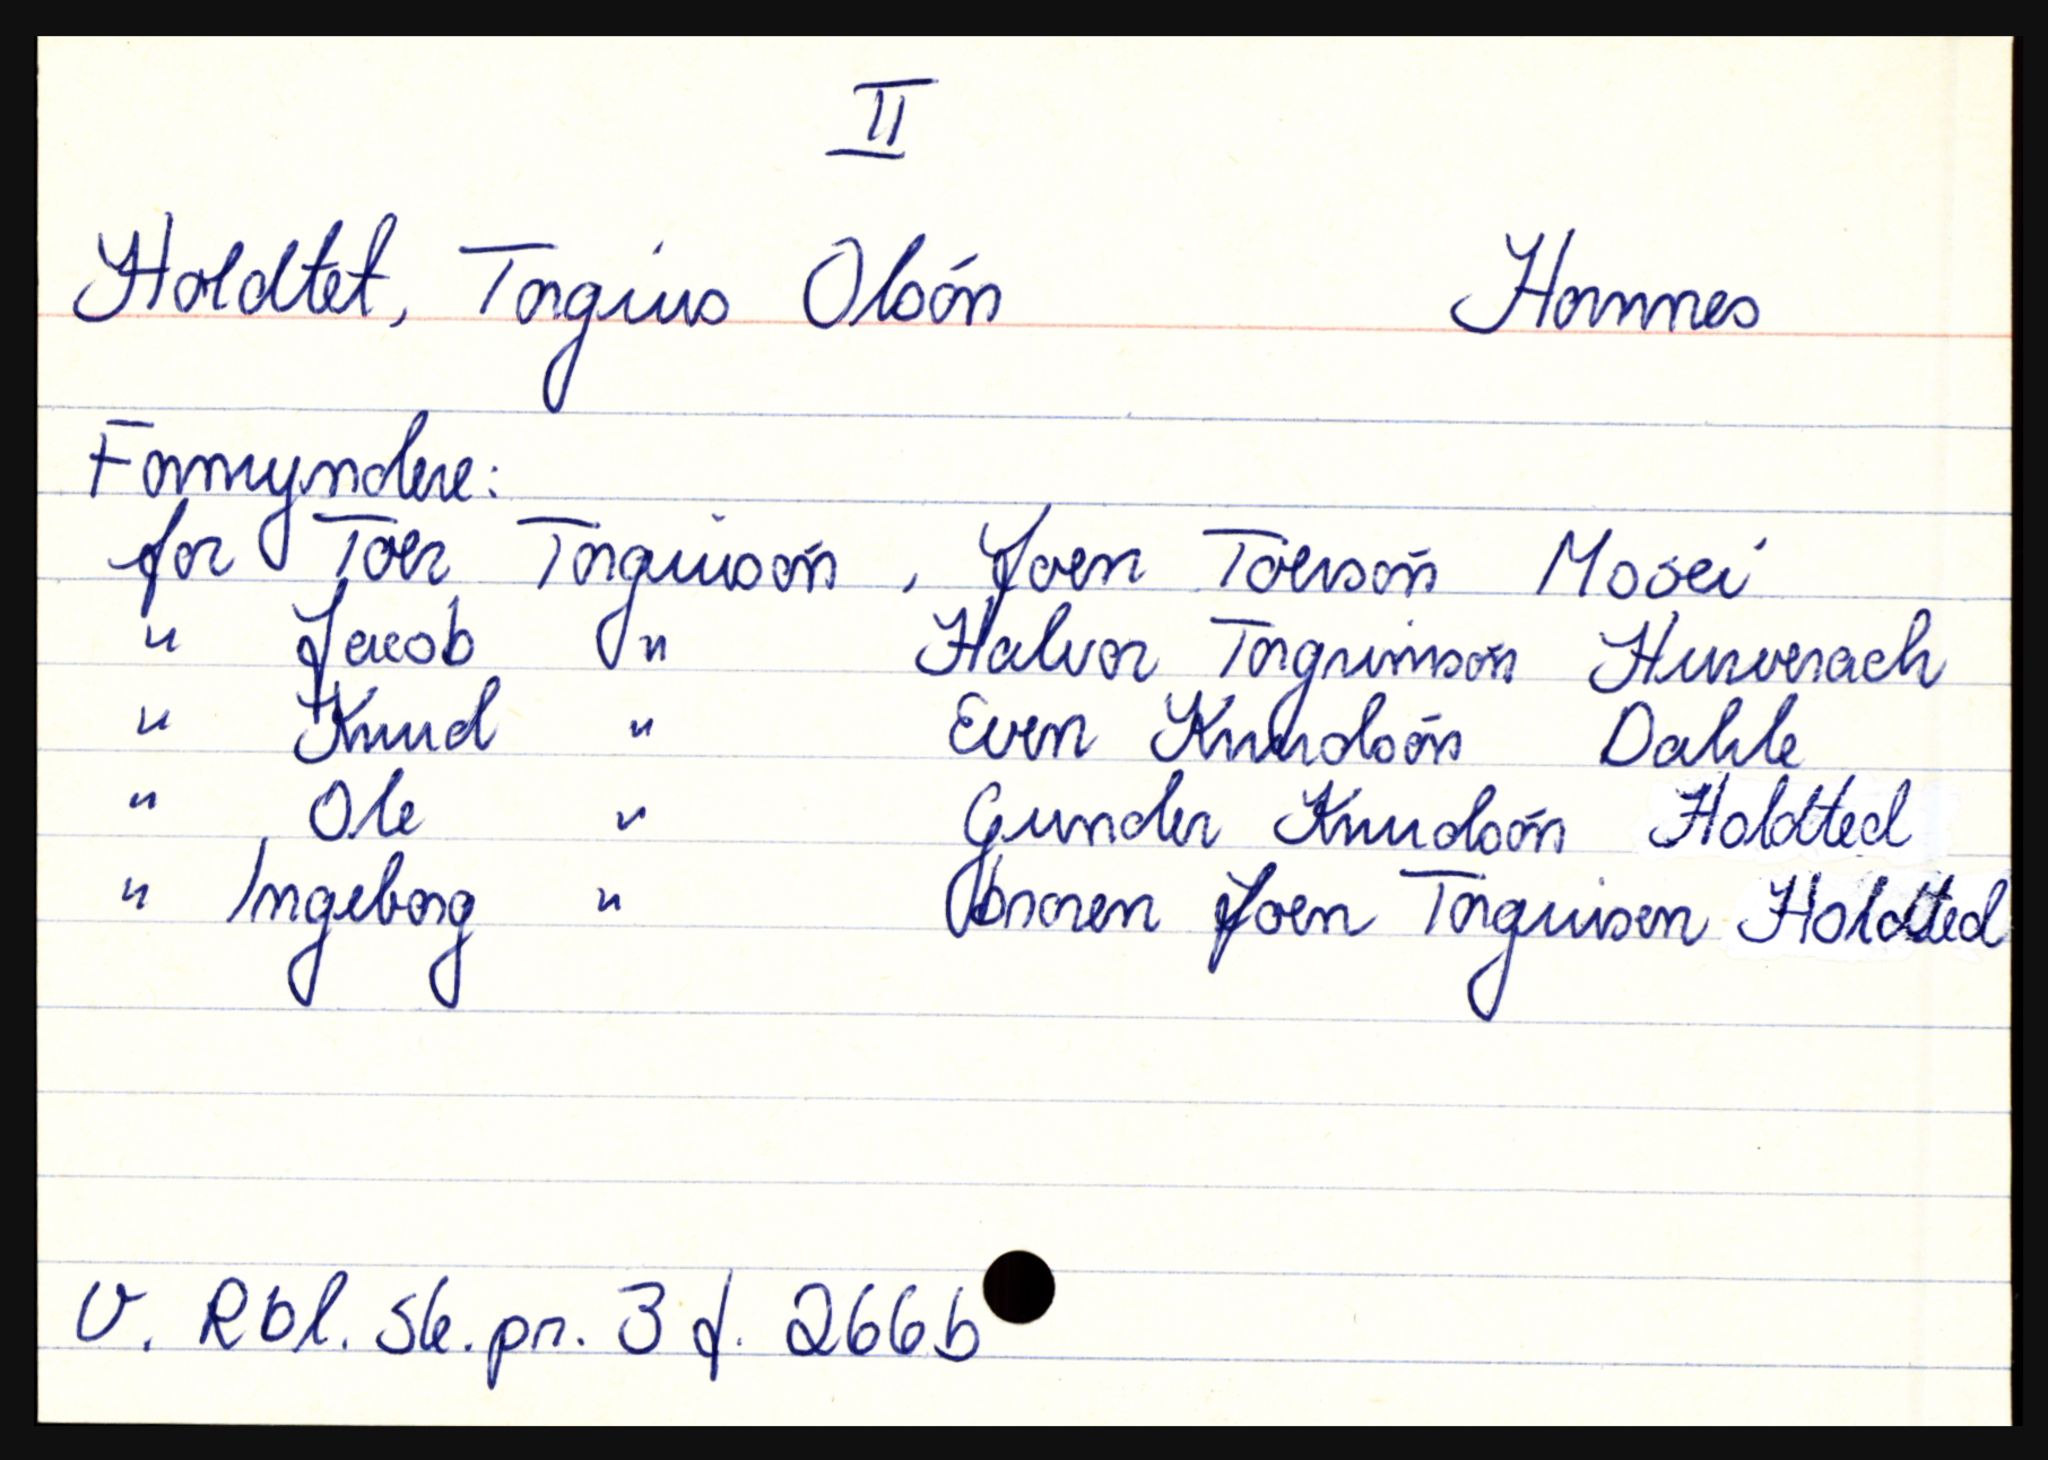 II
Holdtet, Torgius Olsøn Homnes
Formyndere:
for Toer Torgiusøn, Joen Toersøn Mosei
" Jacob " Halvor Torgrimsøn Hurverach
" Knud " Even Knudsøn Dahle
" Ole " Gunder Knudsøn Holdted
" Ingeborg " broren Joen Torgiusen Holdted
V. Rbl. Sk. pr. 3 f. 266b